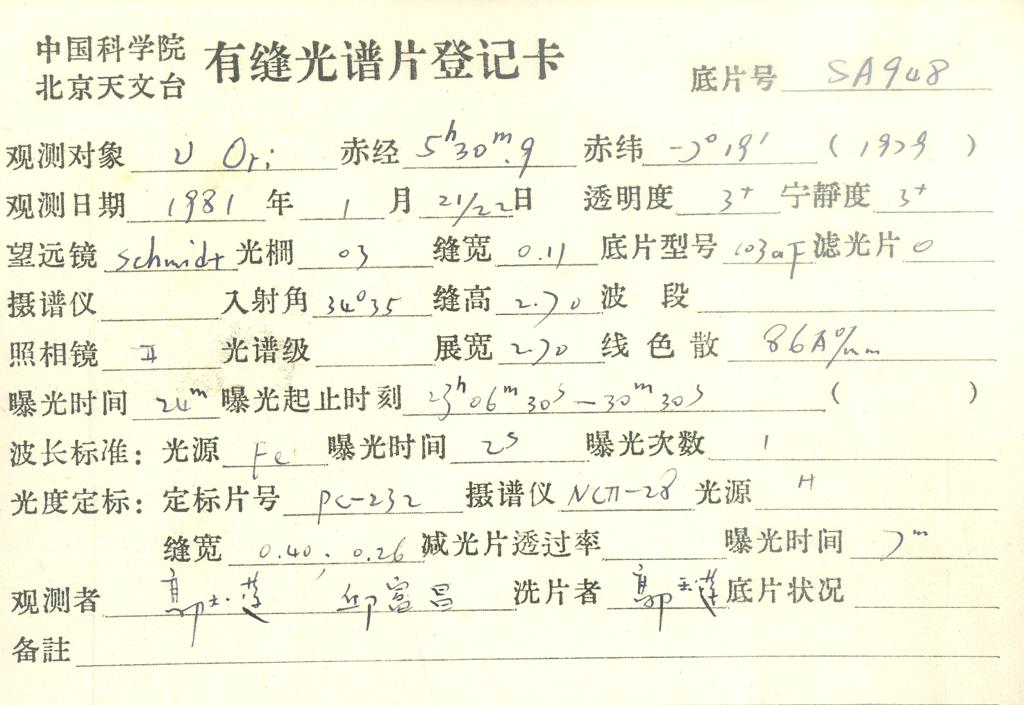 中国科学院
北京天文台 有缝光谱片登记卡 底片号 SA948
观测对象 υ Ori 赤经 5ʰ30ᵐ.9 赤纬 -7°19′ ( 1979 )
观测日期 1981 年 1 月 21/22 日 透明度 3⁺ 宁静度 3⁺
望远镜 Schmidt 光栅 03 缝宽 0.11 底片型号 103aF 滤光片 0
摄谱仪 入射角 34°35 缝高 2.70 波段
照相镜 II 光谱级 展宽 2.70 线色散 86A°/mm
曝光时间 24ᵐ 曝光起止时刻 23ʰ06ᵐ30ˢ—30ᵐ30ˢ ( )
波长标准: 光源 Fe 曝光时间 2ˢ 曝光次数 1
光度定标: 定标片号 PC-232 摄谱仪 ИСП-28 光源 H
缝宽 0.40, 0.26 减光片透过率 曝光时间 7ᵐ
观测者 郭玉莲 邱富昌 洗片者 郭玉莲 底片状况
备註